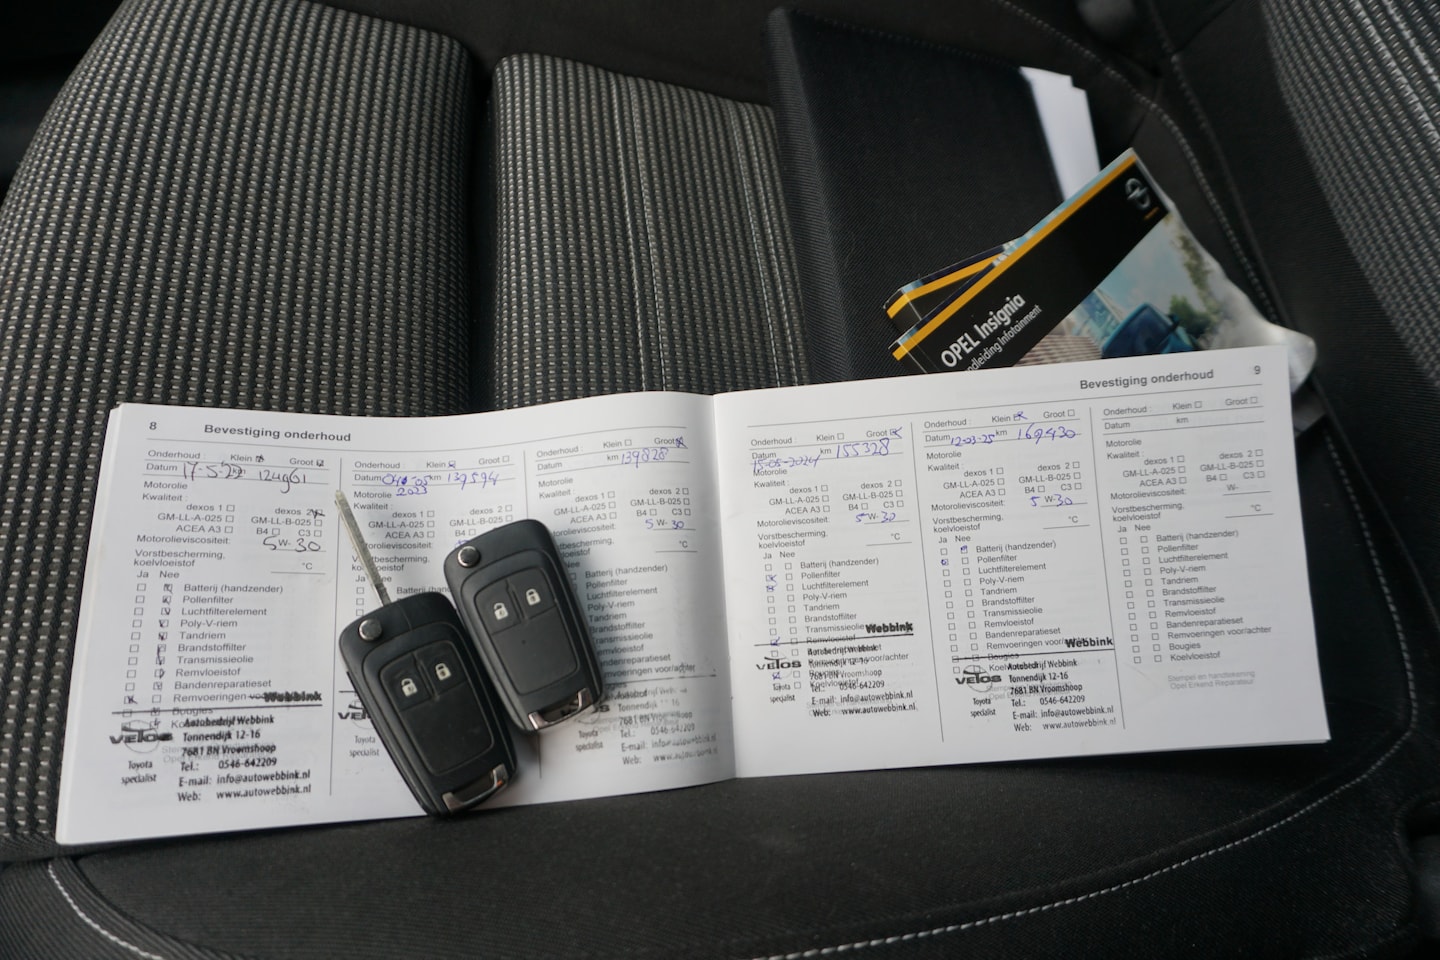 OPEL Insignia
ndleiding Infotainment
8 Bevestiging onderhoud
Onderhoud : Klein Groot
Datum km 124901
Motorolie
Kwaliteit :
dexos 1 dexos 2
GM-LL-A-025 GM-LL-B-025
ACEA A3 B4 C3
Motorolieviscositeit: 5 W- 30
Vorstbescherming,
koelvloeistof °C
Ja Nee
Batterij (handzender)
Pollenfilter
Luchtfilterelement
Poly-V-riem
Tandriem
Brandstoffilter
Transmissieolie
Remvloeistof
Bandenreparatieset
Remvoeringen
Bougies
Webbink
Autobedrijf Webbink
VELOS Tonnendijk 12-16
7681 BN Vroomshoop
Toyota Tel.: 0546-642209
specialist E-mail: info@autowebbink.nl
Web: www.autowebbink.nl
Onderhoud : Klein Groot
Datum km 139594
Motorolie 2023
Kwaliteit :
dexos 1 dexos 2
GM-LL-A-025 GM-LL-B-025
ACEA A3
Motorolieviscositeit:
Vorstbescherming,
koelvloeistof
Ja Nee
Batterij (h
Toyota
specialist
Onderhoud : Klein Groot
Datum km 139828
Motorolie
Kwaliteit :
dexos 1 dexos 2
GM-LL-A-025 GM-LL-B-025
ACEA A3 B4 C3
Motorolieviscositeit: 5 W- 30
Vorstbescherming,
koelvloeistof °C
Batterij (handzender)
Pollenfilter
Luchtfilterelement
Poly-V-riem
Tandriem
Brandstoffilter
Transmissieolie
Remvloeistof
Bandenreparatieset
Remvoeringen voor/achter
Toyota Tel.: 0546-642209
specialist E-mail: info@autowebbink.nl
Web: www.autowebbink.nl
Bevestiging onderhoud 9
Onderhoud : Klein Groot
Datum 15-05-2024 km 155328
Motorolie
Kwaliteit :
dexos 1 dexos 2
GM-LL-A-025 GM-LL-B-025
ACEA A3 B4 C3
Motorolieviscositeit: 5 W- 30
Vorstbescherming,
koelvloeistof °C
Ja Nee
Batterij (handzender)
Pollenfilter
Luchtfilterelement
Poly-V-riem
Tandriem
Brandstoffilter
Transmissieolie
Remvloeistof
Webbink
Autobedrijf Webbink
VELOS Tonnendijk 12-16
7681 BN Vroomshoop
Toyota Tel.: 0546-642209
specialist E-mail: info@autowebbink.nl
Web: www.autowebbink.nl
Onderhoud : Klein Groot
Datum 12-03-25 km 169430
Motorolie
Kwaliteit :
dexos 1 dexos 2
GM-LL-A-025 GM-LL-B-025
ACEA A3 B4 C3
Motorolieviscositeit: 5 W- 30
Vorstbescherming,
koelvloeistof °C
Ja Nee
Batterij (handzender)
Pollenfilter
Luchtfilterelement
Poly-V-riem
Tandriem
Brandstoffilter
Transmissieolie
Remvloeistof
Bandenreparatieset
Remvoeringen voor/achter
Bougies
Webbink
Autobedrijf Webbink
VELOS Tonnendijk 12-16
7681 BN Vroomshoop
Toyota Tel.: 0546-642209
specialist E-mail: info@autowebbink.nl
Web: www.autowebbink.nl
Onderhoud : Klein Groot
Datum km
Motorolie
Kwaliteit :
dexos 1 dexos 2
GM-LL-A-025 GM-LL-B-025
ACEA A3 B4 C3
Motorolieviscositeit: W-
Vorstbescherming,
koelvloeistof °C
Ja Nee
Batterij (handzender)
Pollenfilter
Luchtfilterelement
Poly-V-riem
Tandriem
Brandstoffilter
Transmissieolie
Remvloeistof
Bandenreparatieset
Remvoeringen voor/achter
Bougies
Koelvloeistof
Stempel en handtekening
Opel Erkend Reparateur